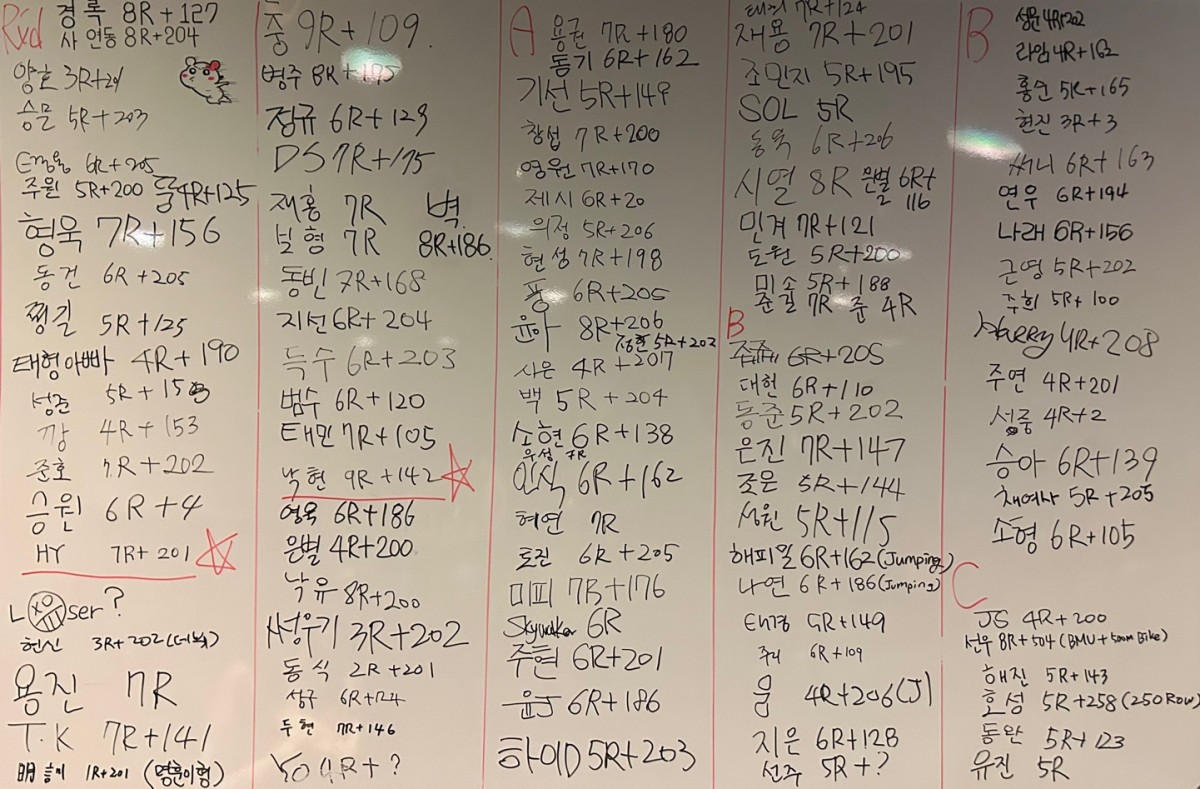 Rxd
경록 8R+127
사 언동 8R+204
양호 3R+201
승문 5R+203
6R+205
주원 5R+200 둘 4R+125
형욱 7R+156
동건 6R+205
찡길 5R+125
태형아빠 4R+190
성준 5R+153
깡 4R+153
준호 7R+202
승원 6R+4
HY 7R+201
Loser?
헌신 3R+202(데뷔)
용진 7R
T.K 7R+141
1R+201 (명훈이형)
충 9R+109.
병주 8R+195
정규 6R+129
DS 7R+175
재홍 7R 벽.
빌형 7R 8R+186
동빈 7R+168
지선 6R+204
득수 6R+203
범수 6R+120
태민 7R+105
낙현 9R+142
영욱 6R+186
은별 4R+200
낙유 8R+200
서성우기 3R+202
동식 2R+201
성구 6R+124
두현 7R+146
YO 4R+?
A
용권 7R+180
동기 6R+162
기선 5R+149
창섭 7R+200
영원 7R+170
제시 6R+20
의정 5R+206
현성 7R+198
퐁 6R+205
윤아 8R+206
정훈 5R+202
사은 4R+2017
백 5R+204
소현 6R+138
우성 7R
인식 6R+162
혜연 7R
토진 6R+205
미피 7R+176
Skywalker 6R
주현 6R+201
윤J 6R+186
하이D 5R+203
7R+124
재용 7R+201
조민지 5R+195
SOL 5R
동욱 6R+206
시열 8R 은별 6R+116
민겨 7R+121
도원 5R+200
미소 5R+188
준길 7R 준 4R
B
쥽쥽 6R+205
대헌 6R+110
동준 5R+202
은진 7R+147
조은 5R+144
성원 5R+115
해피일 6R+162(Jumping)
나연 6R+186(Jumping)
태경 5R+149
주리 6R+109
움 4R+206(J)
지은 6R+128
선주 5R+?
B
성윤 4R+202
라임 4R+162
홍순 5R+165
현진 3R+3
써니 6R+163
연우 6R+194
나래 6R+156
근영 5R+202
주희 5R+100
Harry 4R+208
주연 4R+201
성중 4R+2
승아 6R+139
채여사 5R+205
소형 6R+105
C
JS 4R+200
선우 8R+504(BMU+500m Bike)
해진 5R+143
효성 5R+258(250Row)
동완 5R+123
유진 5R